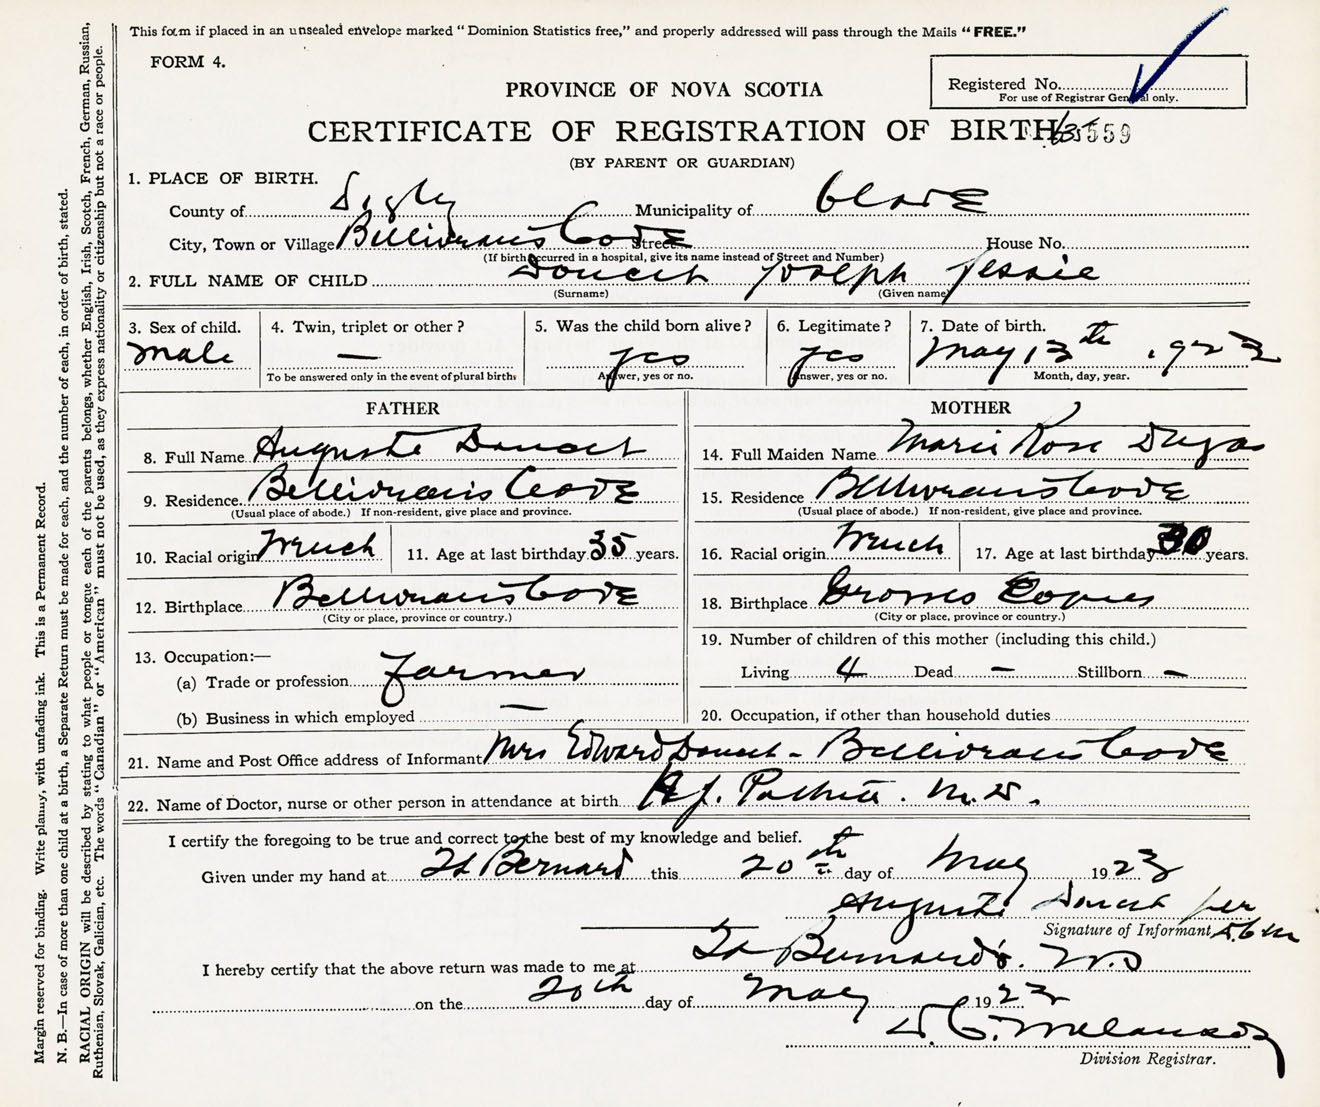 This form if placed in an unsealed envelope marked "Dominion Statistics free," and properly addressed will pass through the Mails "FREE."
FORM 4.
Registered No.
For use of Registrar General only.
PROVINCE OF NOVA SCOTIA
CERTIFICATE OF REGISTRATION OF BIRTH
(BY PARENT OR GUARDIAN)
1. PLACE OF BIRTH.
County of Digby Municipality of Clare
City, Town or Village Belliveau's Cove Street House No.
(If birth occurred in a hospital, give its name instead of Street and Number)
2. FULL NAME OF CHILD Doucet Joseph Jessie
(Surname) (Given name)
3. Sex of child. 4. Twin, triplet or other? 5. Was the child born alive? 6. Legitimate? 7. Date of birth.
Male — yes yes May 13th 1923
To be answered only in the event of plural birth. Answer, yes or no. Answer, yes or no. Month, day, year.
FATHER MOTHER
8. Full Name Auguste Doucet 14. Full Maiden Name Marie Rose Dugas
9. Residence Belliveau's Cove 15. Residence Belliveau's Cove
(Usual place of abode.) If non-resident, give place and province. (Usual place of abode.) If non-resident, give place and province.
10. Racial origin French 11. Age at last birthday 35 years. 16. Racial origin French 17. Age at last birthday 30 years.
12. Birthplace Belliveau's Cove 18. Birthplace Grosses Coques
(City or place, province or country.) (City or place, province or country.)
13. Occupation:— 19. Number of children of this mother (including this child.)
(a) Trade or profession Farmer Living 4 Dead — Stillborn —
(b) Business in which employed — 20. Occupation, if other than household duties
21. Name and Post Office address of Informant Mrs Edward Doucet - Belliveau's Cove
22. Name of Doctor, nurse or other person in attendance at birth M.D.
I certify the foregoing to be true and correct to the best of my knowledge and belief.
Given under my hand at St Bernard this 20th day of May 1923
Auguste Doucet per
Signature of Informant
I hereby certify that the above return was made to me at St Bernard's. N.S
on the 20th day of May 1923
Division Registrar.
Margin reserved for binding. Write plainly, with unfading ink. This is a Permanent Record.
N. B.—In case of more than one child at a birth, a Separate Return must be made for each, and the number of each, in order of birth, stated.
RACIAL ORIGIN will be described by stating to what people or tongue each of the parents belongs, whether English, Irish, Scotch, French, German, Russian,
Ruthenian, Slovak, Galician, etc. The words "Canadian" or "American" must not be used, as they express nationality or citizenship but not a race or people.